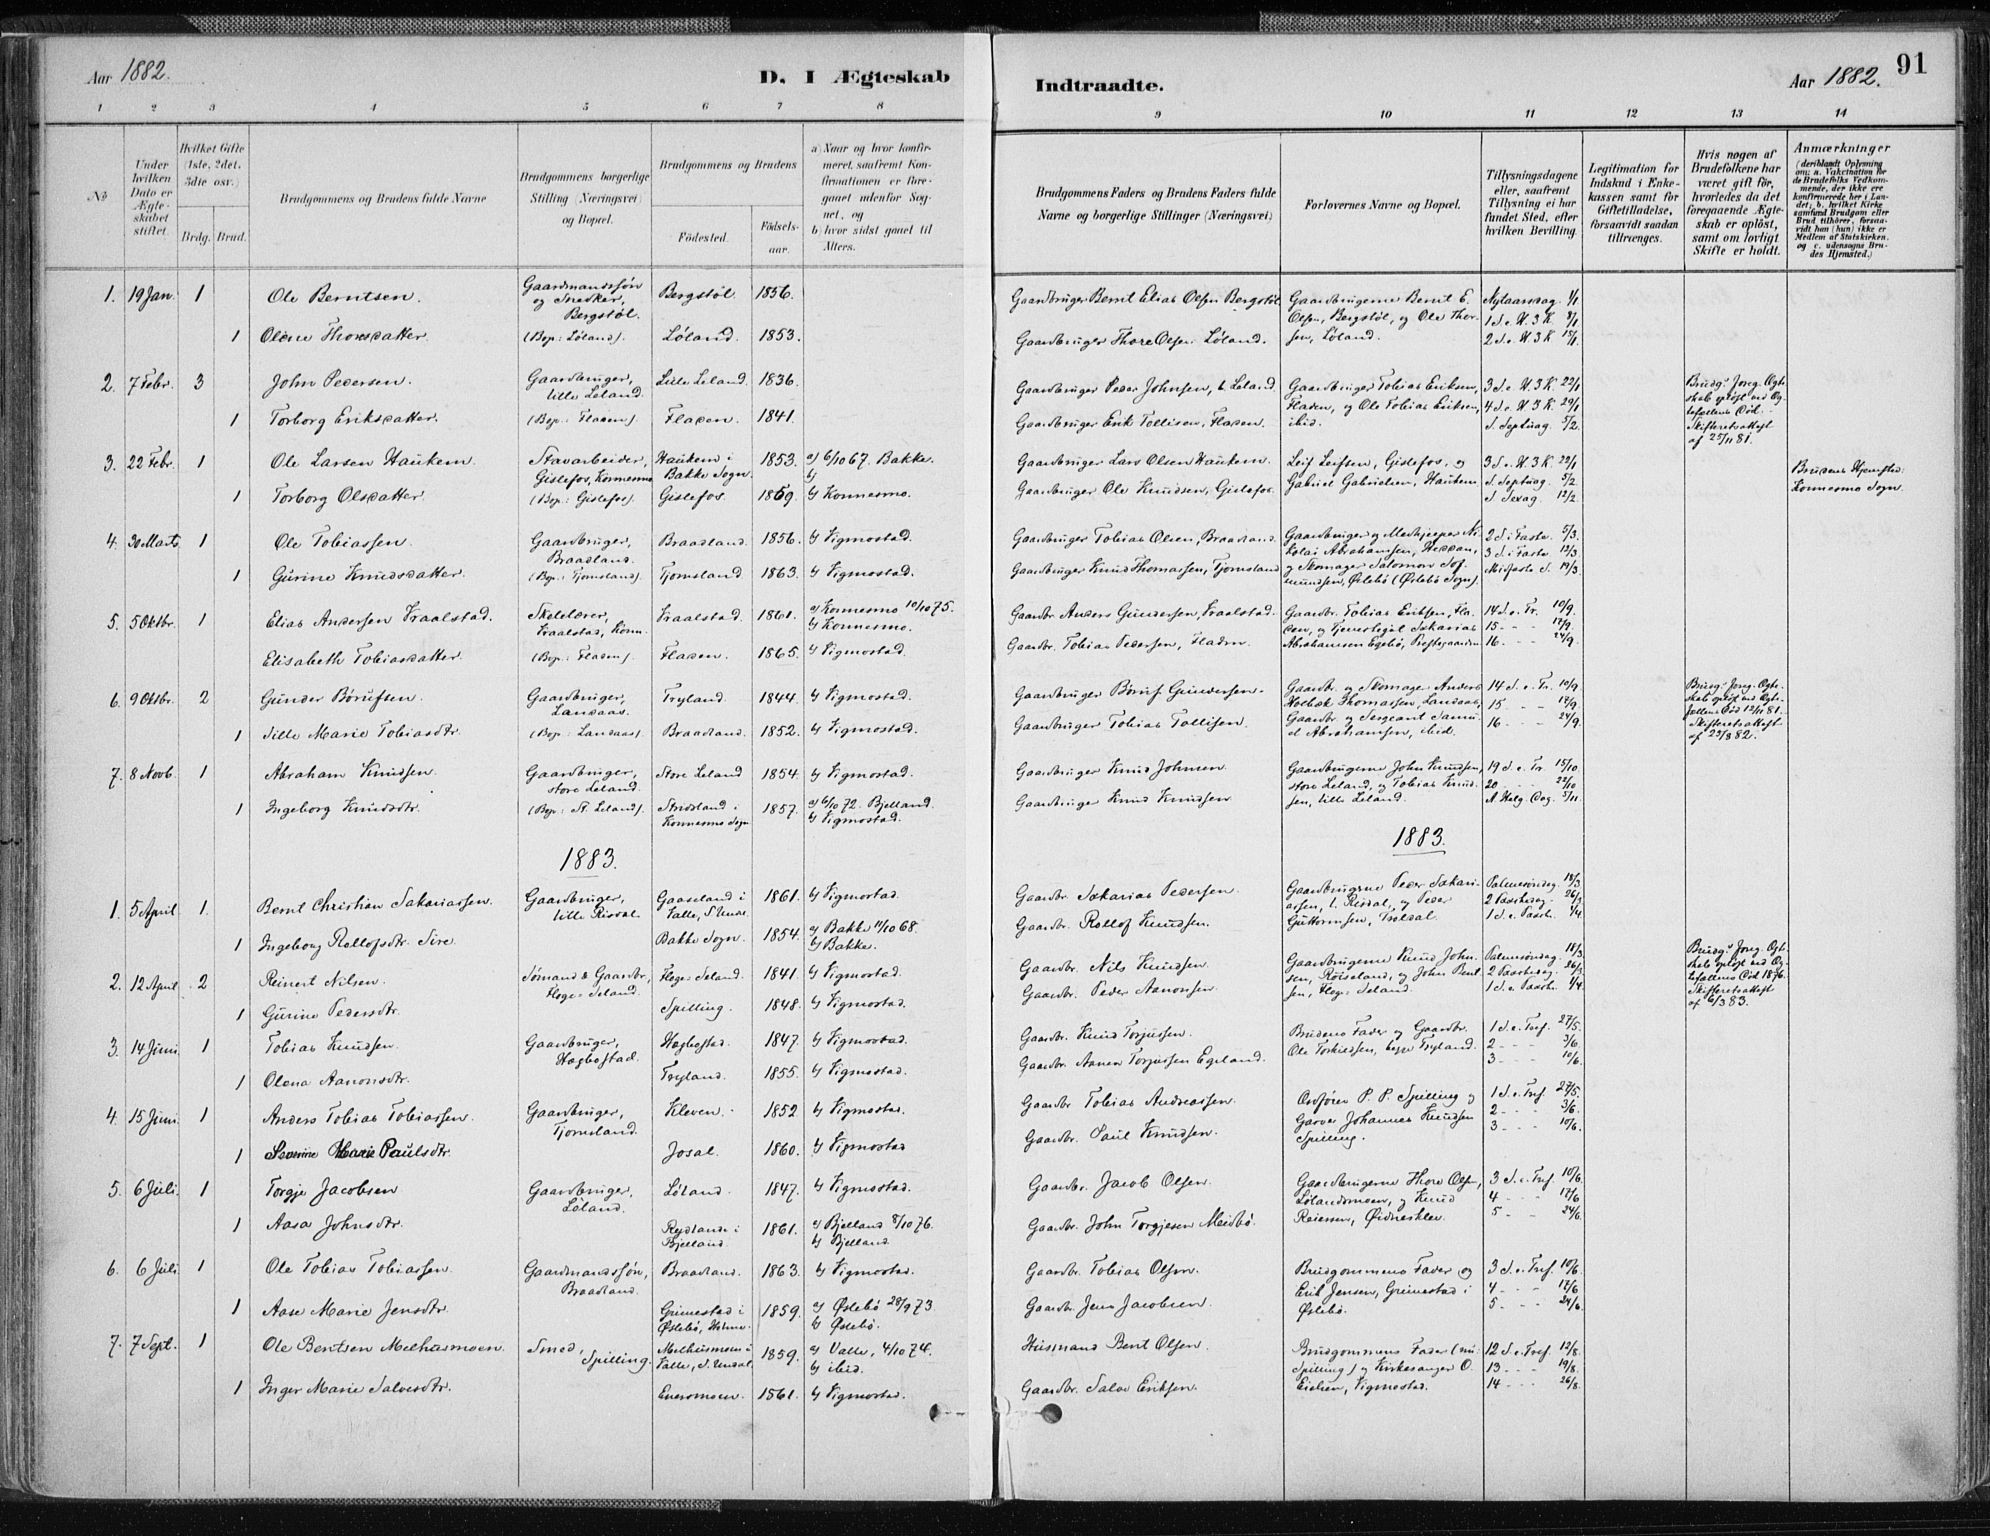 Aar 1882.
D. I Ægteskab
Indtraadte.
Aar 1882.
91
1 2 3 4 5 6 7 8 9 10 11 12 13 14
No
Under hvilken Dato er Ægteskabet stiftet.
Hvilket Gifte (1ste, 2det, 3die osv.)
Brdg. Brud.
Brudgommens og Brudens fulde Navne
Brudgommens borgerlige Stilling (Næringsvei) og Bopæl.
Brudgommens og Brudens
Fødested.
Fødselsaar.
a) Naar og hvor konfirmeret, saafremt Konfirmationen er foregaaet udenfor Sognet, og
b) hvor sidst gaaet til Alters.
Brudgommens Faders og Brudens Faders fulde Navne og borgerlige Stillinger (Næringsvei)
Forlovernes Navne og Bopæl.
Tillysningsdagene eller, saafremt Tillysning ei har fundet Sted, efter hvilken Bevilling.
Legitimation for Indskud i Enkekassen samt for Giftetilladelse, forsaavidt saadan tiltrænges.
Hvis nogen af Brudefolkene har været gift før, hvorledes da det foregaaende Ægteskab er opløst, samt om lovligt Skifte er holdt.
Anmærkninger
(deriblandt Oplysning om: a. Vakcination for de Brudefolks Vedkommende, der ikke ere konfirmerede her i Landet; b. hvilket Kirkesamfund Brudgom eller Brud tilhører, forsaavidt han (hun) ikke er Medlem af Statskirken, og c. udensogns Brudes Hjemsted.)
1. 19 Jan. 1 Ole Berntsen. Gaardmandssøn og Snedker, Bergstøl. Bergstøl. 1856. Gaardbruger Bernt Elias Olsen Bergstøl Gaardbrugerne Bernt E. Olsen, Bergstøl, og Ole Thorsen, Løland. Nytaarsdag 1/1 1 S. e. H. 3 K. 8/1 2 S. e. H. 3 K 15/1
1 Olene Thorsdatter (Bop: Løland). Løland. 1853. Gaardbruger Thore Olsen Løland.
2. 7 Febr. 3 John Pedersen. Gaardbruger, Lille Leland. Lille Leland. 1836. Gaardbruger Peder Johnsen, L. Leland Gaardbruger Tobias Eriksen, Fladen, og Ole Tobias Eriksen, ibid. 3 S. e. H. 3 K. 22/1 4 S. e. H. 3 K. 29/1 S. Septuag. 5/2 Brudg.s foreg. Ægteskab opløst ved Ægtefællens Død. Skifteretsattest af 25/11 81.
1 Torborg Eriksdatter. (Bop: Fladen). Fladen. 1841. Gaardbruger Erik Tollisen, Fladen.
3. 22 Febr. 1 Ole Larsen Haukem. Stavarbeider, Gislefos, Konnesmo Haukem i Bakke Sogn. 1853. a) 6/10 67. Bakke. b) Gaardbruger Lars Olsen Haukem. Leif Leifsen, Gislefos, og Gabriel Gabrielsen, Haukem 3 S. e. H. 3 K. 22/1 S. Septuag. 5/2 S. Sexag. 12/2 Brudens Hjemsted: Konnesmo Sogn.
1 Torborg Olsdatter. (Bop: Gislefos). Gislefos. 1859. b) Konnesmo. Gaardbruger Ole Knudsen, Gislefos.
4. 30 Marts 1 Ole Tobiassen. Gaardbruger, Braadland. Braadland. 1856. b) Vigmostad. Gaardbruger Tobias Olsen, Braadland. Gaardbruger og Medhjelper Nikolai Abrahamsen, Heddan, og Skomager Salomon Sofmundsen, Øslebø (Øslebø Sogn). 2 S. i Faste. 5/3. 3 S. i Faste. 12/3. Midfaste S. 19/3.
1 Gurine Knudsdatter. (Bop: Tjomsland). Tjomsland 1863. b) Vigmostad. Gaardbruger Knud Thomassen, Tjomsland
5. 5 Oktbr. 1 Elias Andersen Fraalstad. Skolelærer, Fraalstad, Konn. Fraalstad. 1861. a) Konnesmo 10/10 75. b) Konnesmo. Gaardbr. Anders Gundersen, Fraalstad. Gaardbr. Tobias Eriksen, Fladen, og Tjenestegut Sakarias Abrahamsen Egebø, Prestegaarden 14 S. e. Tr. 10/9. 15 - - - 17/9. 16 - - - 24/9.
Elisabeth Tobiasdatter. (Bop: Fladen). Fladen. 1865. b) Vigmostad. Gaardbr. Tobias Pedersen, Fladen.
6. 9 Oktbr. 2 Gunder Børufsen. Gaardbruger, Landaas. Tryland. 1844. b) Vigmostad. Gaardbruger Børuf Gundersen. Gaardbr. og Skomager Anders Holbæk Thomassen, Landaas, Gaardbr. og Sergeant Samuel Abrahamsen, ibid. 14 S. e. Tr. 10/9. 15 - - 17/9. 16 - - 24/9. Brudg.s foreg. Ægteskab opløst ved Ægtefællens Død 12/11 81. Skifteretsattest af 25/3 82.
1 Sille Marie Tobiasdtr. (Bop: Landaas). Braadland. 1852. b) Vigmostad. Gaardbruger Tobias Tollisen.
7. 8 Novb. 1 Abraham Knudsen. Gaardbruger, store Leland. Store Leland 1854. b) Vigmostad. Gaardbruger Knud Johnsen Gaardbrugerne John Knudsen, store Leland, og Tobias Knudsen, lille Leland. 19 S. e. Tr. 15/10. 20 - - - 22/10 A. Helg. Dag. 5/11.
1 Ingeborg Knudsdtr. (Bop: St. Leland). Stridsland i Konnesmo Sogn 1857. a) 6/10 72. Bjelland. b) Vigmostad. Gaardbruger Knud Knudsen
1883. 1883.
1. 5 April 1. Bernt Christian Sakariassen. Gaardbruger, lille Risdal. Gaaseland i Valle, S. Undal 1861. b) Vigmostad. Gaardbr. Sakarias Pedersen. Gaardbrugerne Peder Sakariassen, l. Risdal, og Peder Guttormsen, Trældal. Palmesøndag. 18/3. 2 Paaskedag. 26/3 1 S. e. Paaske. 1/4.
1 Ingeborg Rollofsdtr. Sire. Bakke Sogn. 1854. a) Bakke 11/10 68. b) Bakke. Gaardbr. Rollof Knudsen.
2. 12 April 2 Reinert Nilsen. Sømand & Gaardbr., Høge-Seland. Høge-Seland. 1841. b) Vigmostad. Gaardbr. Nils Knudsen Gaardbrugerne Knud Johnsen, Røiseland, og John Bentsen, Høge-Seland. Palmesøndag. 18/3 2 Paaskedag. 26/3 1 S. e. Paaske. 1/4 Brudg.s foreg. Ægteskab opløst ved Ægtefællens Død 1876. Skifteretsattest af 6/3 83.
1 Gurine Pedersdtr. Spilling. 1848. b) Vigmostad. Gaardbr. Peder Aanonsen.
3. 14 Juni 1 Tobias Knudsen. Gaardbruger, Hægbostad. Hægbostad. 1847. b) Vigmostad. Gaardbr. Knud Torjussen. Brudens Fader og Gaardbr. Ole Torkildsen, begge Tryland. 1 S. e. Tref. 27/5. 2 - - - 3/6. 3 - - - 10/6.
1 Olena Aanonsdtr. Tryland. 1855. b) Vigmostad. Gaardbr. Aanen Torjussen Egeland.
4. 15 Juni 1 Anders Tobias Tobiassen. Gaardbruger, Tjomsland. Kleven. 1852 b) Vigmostad. Gaardbr. Tobias Andreassen. Ordfører P. P. Spilling og Garver Johannes Knudsen Spilling. 1 S. e. Tref. 27/5. 2 - - - 3/6. 3 - - - 10/6.
1 Severine Marie Paulsdtr. Josal. 1860. b) Vigmostad Gaardbr. Paul Knudsen.
5. 6 Juli. 1 Torgje Jacobsen Gaardbruger, Løland. Løland. 1847. b) Vigmostad. Gaardbr. Jacob Olsen. Gaardbrugerne Thore Olsen, Lølandsmoen, og Knud Reiersen, Øidneskleiv. 3 S. e. Tref. 10/6. 4 - - - 17/6 5 - - 24/6.
1 Aasa Johnsdtr. Reidland i Bjelland. 1861. a) Bjelland 8/10 76. b) Bjelland. Gaardbr. John Torgjesen Meidbø.
6. 6 Juli 1 Ole Tobias Tobiassen. Gaardmandssøn, Braadland. Braadland. 1863. b) Vigmostad. Gaardbr. Tobias Olsen. Brudgommens Fader og Erik Jensen, Grimestad i Øslebø. 3 S. e. Tref. 10/6. 4 - - - 17/6 5 - - - 24/6.
1 Aase Marie Jensdtr. Grimestad i Øslebø, Holme. 1859. a) Øslebø 28/9 73. b) Øslebø. Gaardbr. Jens Jacobsen.
7. 7 Sept. 1 Ole Bentsen Melhusmoen. Smed, Spilling. Melhusmoen i Valle, S. Undal. 1859. a) Valle, 4/10 74. b) ibid. Husmand Bent Olsen. Brudgommens Fader (nu Spilling) og Kirkesanger O. Eielsen, Vigmostad. 12 S. e. Tref. 12/8. 13 - - - 19/8. 14 - - - 26/8.
1 Inger Marie Salvesdtr. Eversmoen. 1861. b) Vigmostad. Gaardbr. Salve Eriksen.